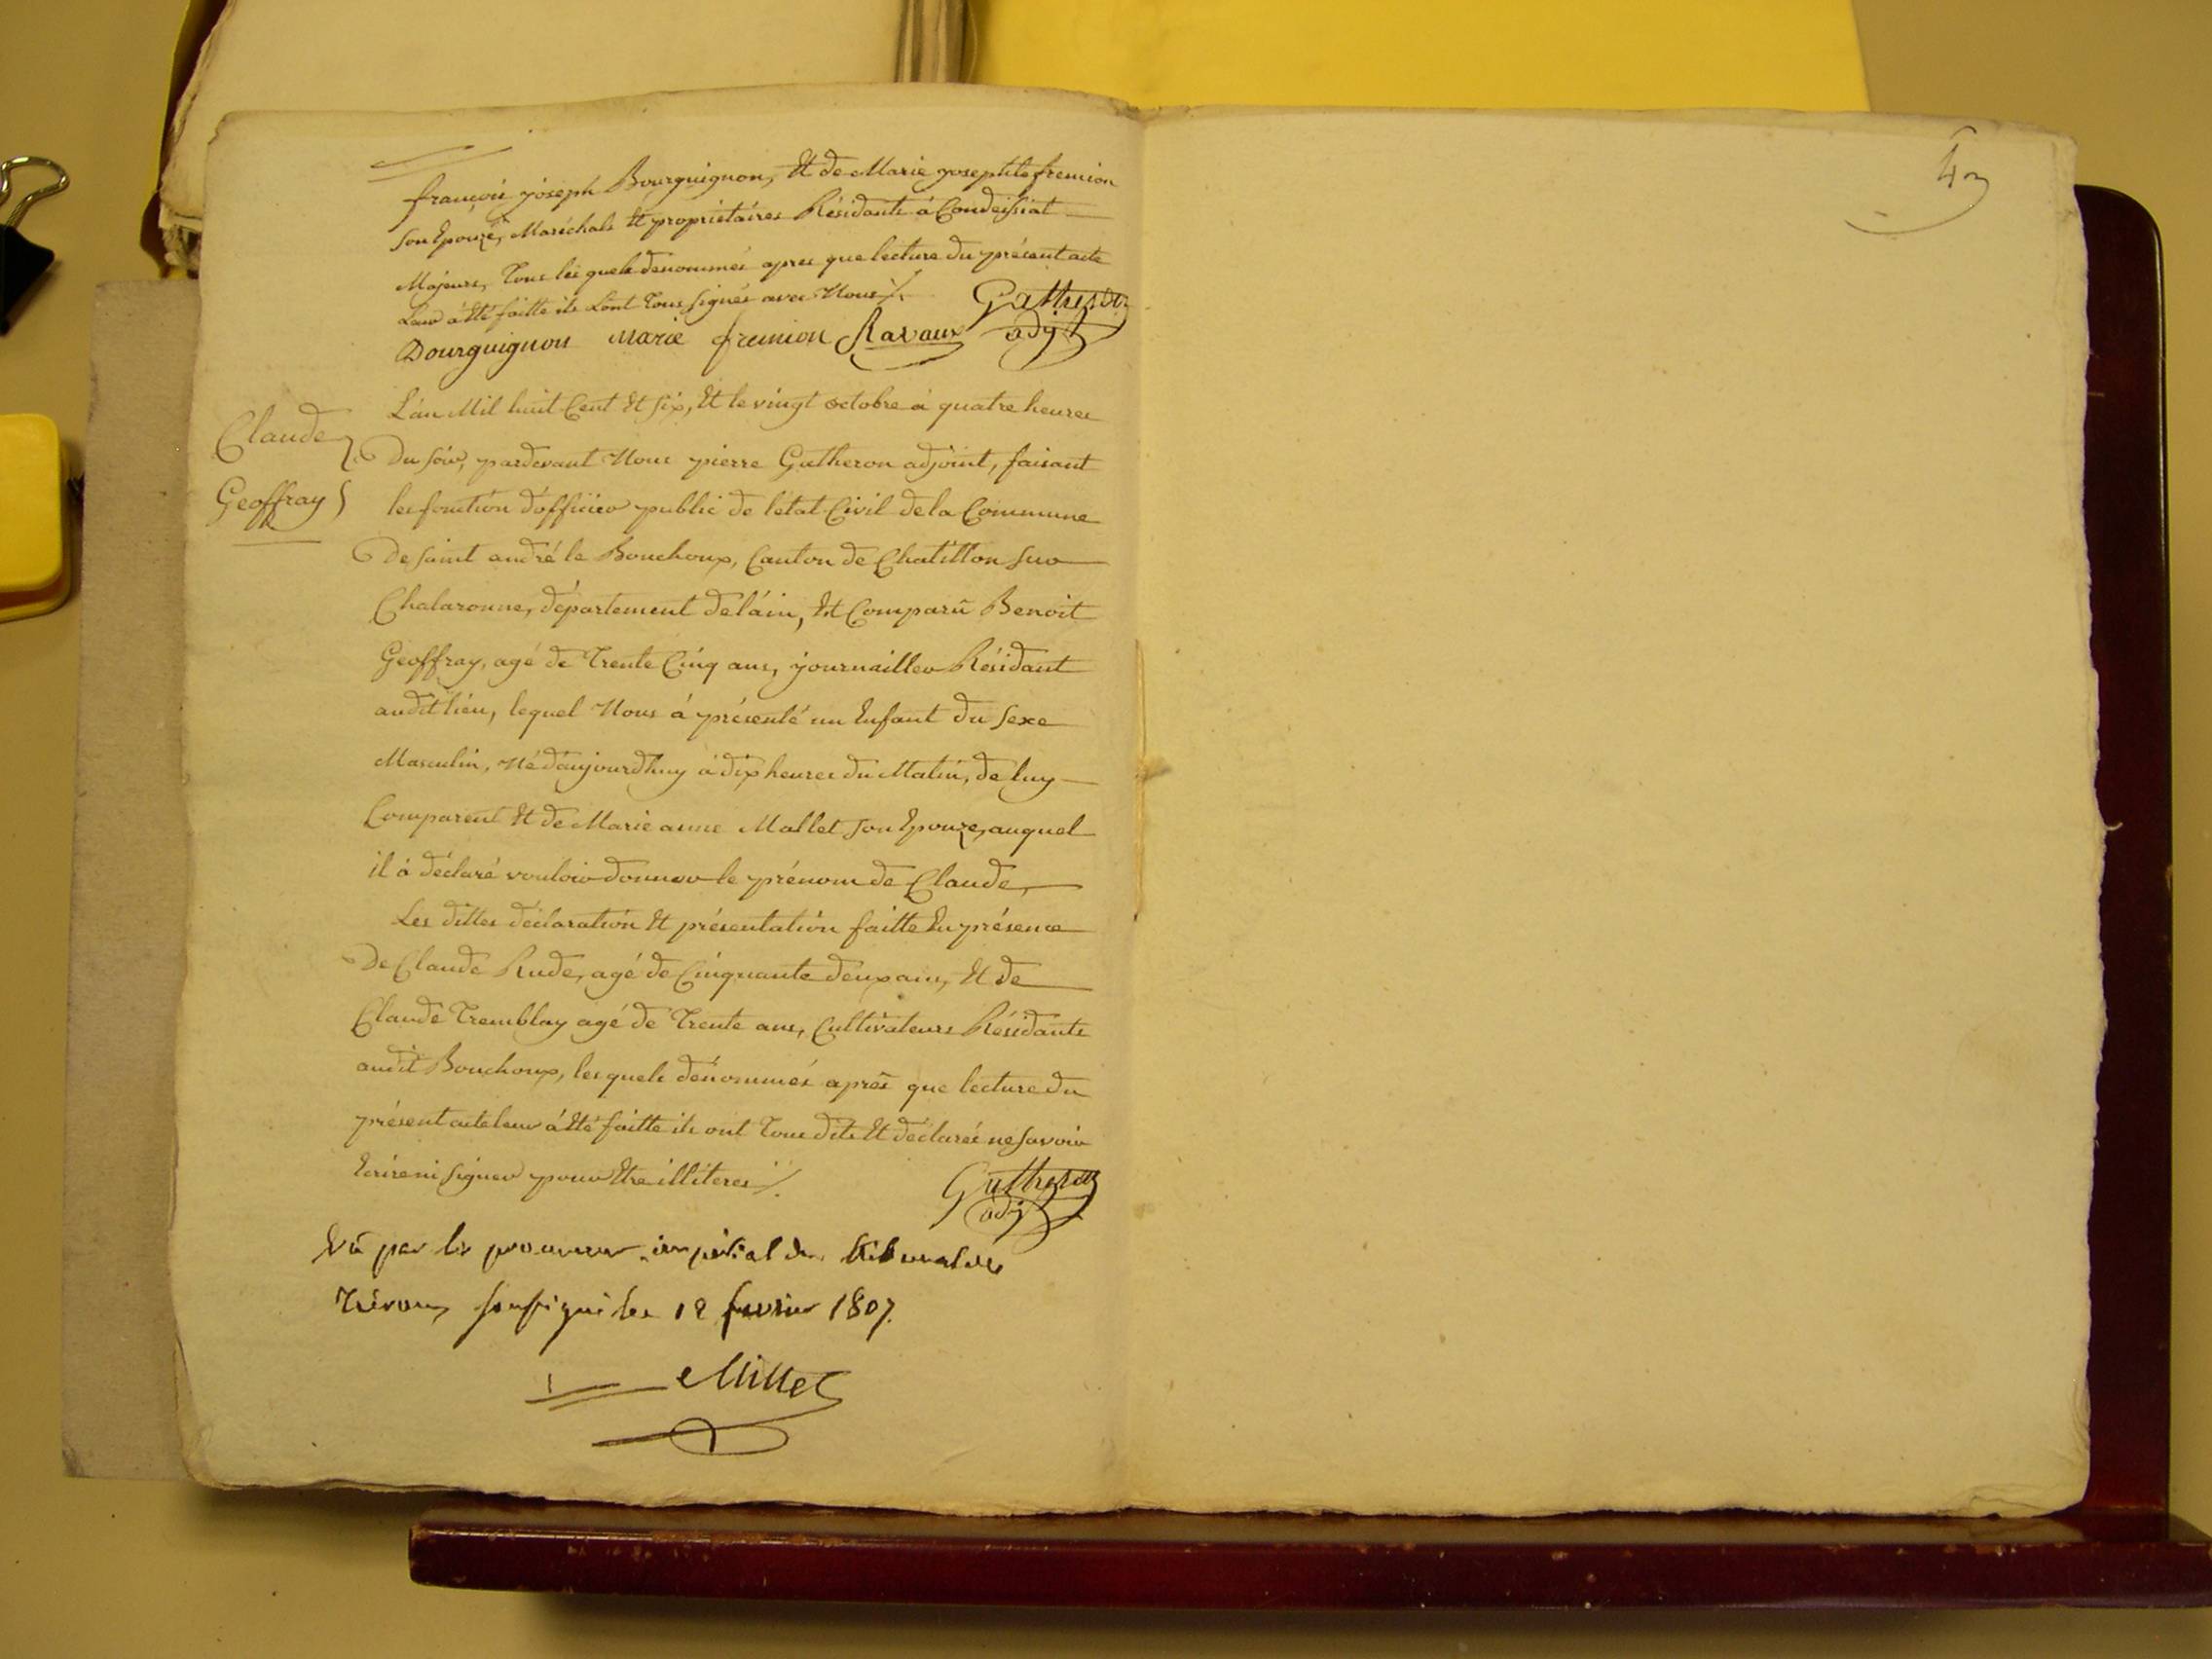 françois joseph Bourguignon, Et de Marie josephte fremion
son Epouze, Maréchals Et propriétaires Résidants à Condeissiat
Majeurs, Tous les quels denommés apres que lecture du présent acte
Leur à Eté faitte ils L'ont Tous signés avec Nous ⁒
Gatheron adjt
Bourguignon marie fremion Ravaux
Claude
Geoffray
L'an Mil huit Cent Et six, Et le vingt octobre à quatre heures
Du soir, pardevant Nous pierre Gatheron adjoint, faisant
les fonction d'officier public de l'état Civil de la Commune
De saint andré le Bouchoux, Canton de Chatillon sur
Chalaronne, département de láin, Est Comparû Benoit
Geoffray, agé de Trente Cinq ans, journaillier Résidant
audit lieu, lequel Nous à présenté un Enfant du sexe
Masculin, Né d'aujourdhuy à dix heures du Matin, de luy
Comparent Et de Marie anne Mallet son Epouze, auquel
il à déclaré vouloir donner le prénom de Claude,
Les dittes déclaration Et présentation faitte En présence
De Claude Rude, agé de Cinquante deux ans, Et de
Claude Tremblay agé de Trente ans, Cultivateurs Résidants
audit Bouchoux, les quels dénommés après que lecture du
présent acte leur à Eté faitte ils ont Tous dits Et déclarés ne savoir
Ecrire ni signer pour Etre illiteres ⁒
Gatheron adjt
Vû par le procureur impérial du tribunal de
Trévoux soussigné le 12 fevrier 1807.
Millet